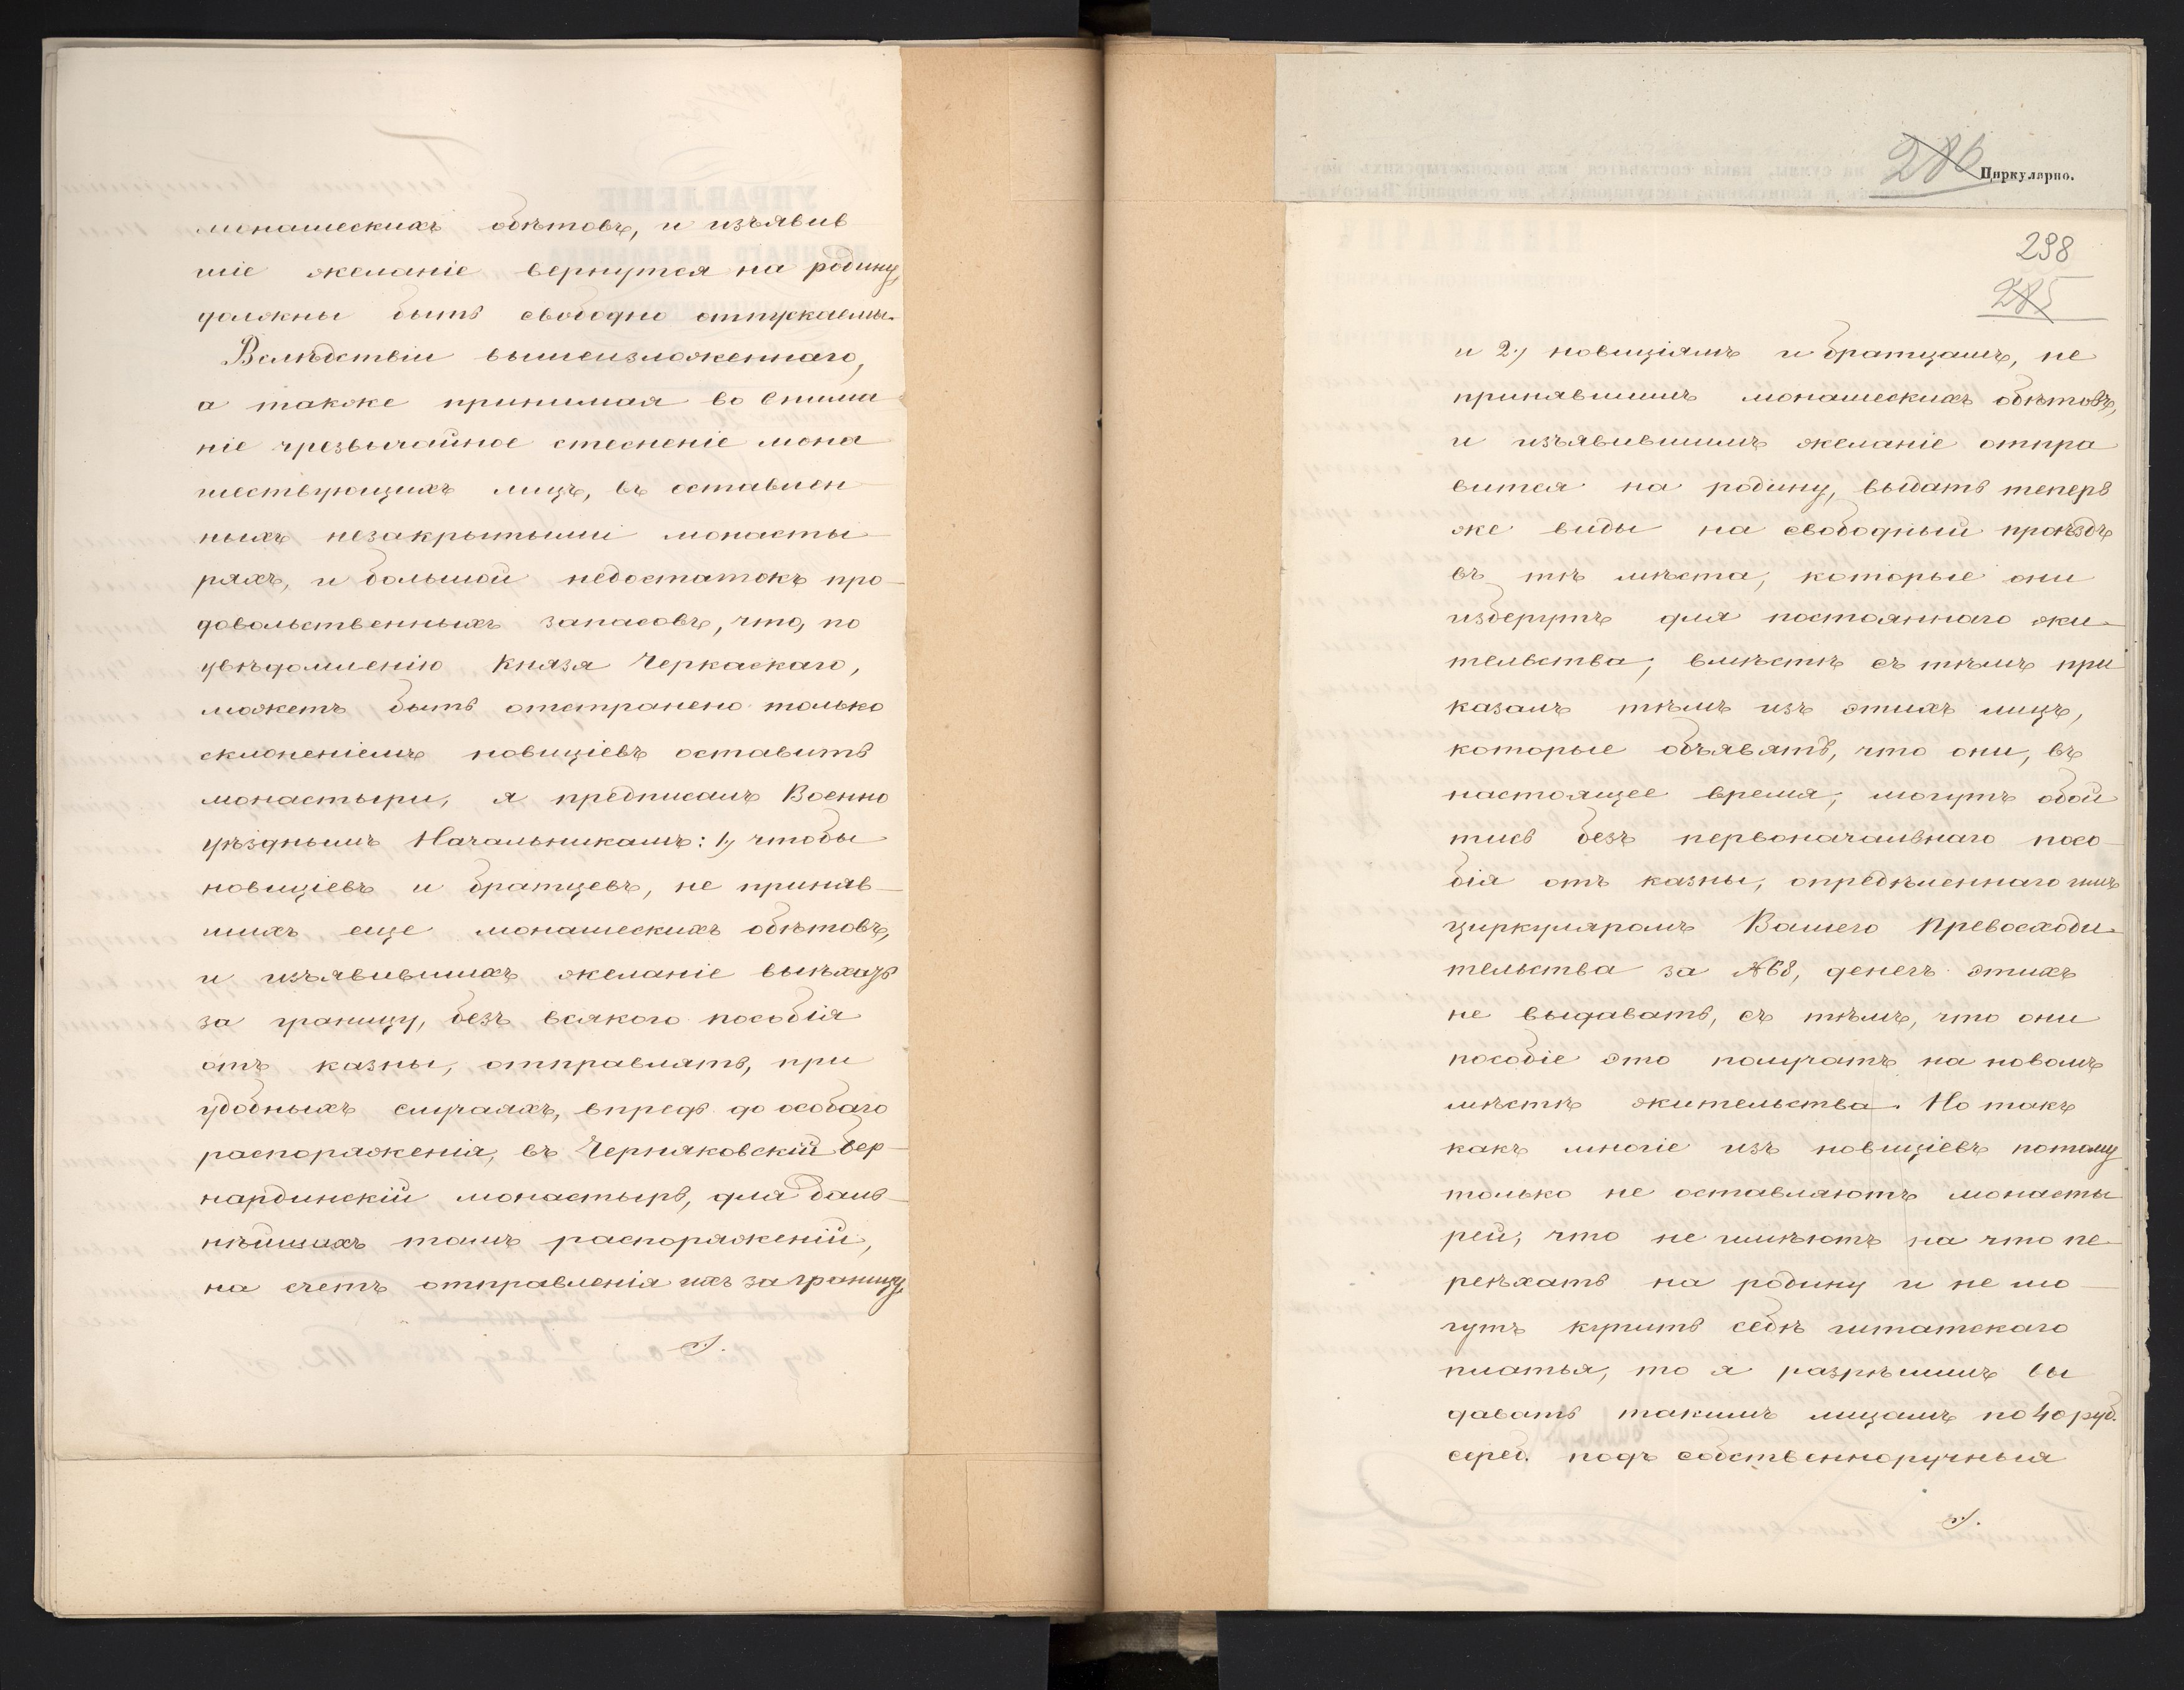 монашескихъ обѣтовъ, и изъявив
шіе желаніе вернутся на родину,
должны быть свободно отпускаемы.
Вслѣдствіи вышеизложеннаго,
а также принимая во внима
ніе чрезвычайное стесненіе мона
шествующихъ лицъ, въ оставлен
ныхъ незакрытыми монасты-
ряхъ, и большой недостатокъ про-
довольственныхъ запасовъ, что, по
увѣдомленію Князя Черкаскаго,
можетъ быть отстранено только
склоненіемъ новиціевъ оставить
монастыри, я предписалъ Военно
уѣзднымъ Начальникамъ: 1, чтобы
новиціевъ и братцевъ, не приняв-
шихъ еще монашескихъ обѣтовъ,
и изъявившихъ желаніе выѣхать
за границу, безъ всякого пособія
отъ казны, отправлять, при
удобныхъ случаяхъ, впредь до особаго
распоряженія, въ Черняковскій бер-
нардинскій монастырь, для даль-
нѣйшихъ тамъ распоряженій,
на счетъ отправленія ихъ за границу,
Циркулярно.
286
298
285
и 2, новиціямъ и братцамъ, не
принявшимъ монашескихъ обѣтовъ,
и изъявившимъ желаніе отпра
вится на родину, выдать теперь
же виды на свободный проѣздъ
въ тѣ мѣста, которые они
изберутъ для постояннаго жи-
тельства; вмѣстѣ съ тѣмъ при
казалъ тѣмъ изъ этихъ лицъ,
которые объявятъ, что они, въ
настоящее время, могутъ обой
тись безъ первоначальнаго посо-
бія отъ казны, опредѣленнаго имъ
циркуляромъ Вашего Превосходи-
тельства за №68, денегъ этихъ
не выдавать, съ тѣмъ, что они
пособіе это получатъ на новомъ
мѣстѣ жительства. Но такъ
какъ многіе изъ новиціевъ потому
только не оставляютъ монасты
рей, что не имѣютъ на что пе-
реѣхать на родину и не мо-
гутъ купить себѣ штатскаго
платья, то я разрѣшилъ вы
давать такимъ лицамъ по 40 руб.
сереб. подъ собственноручныя